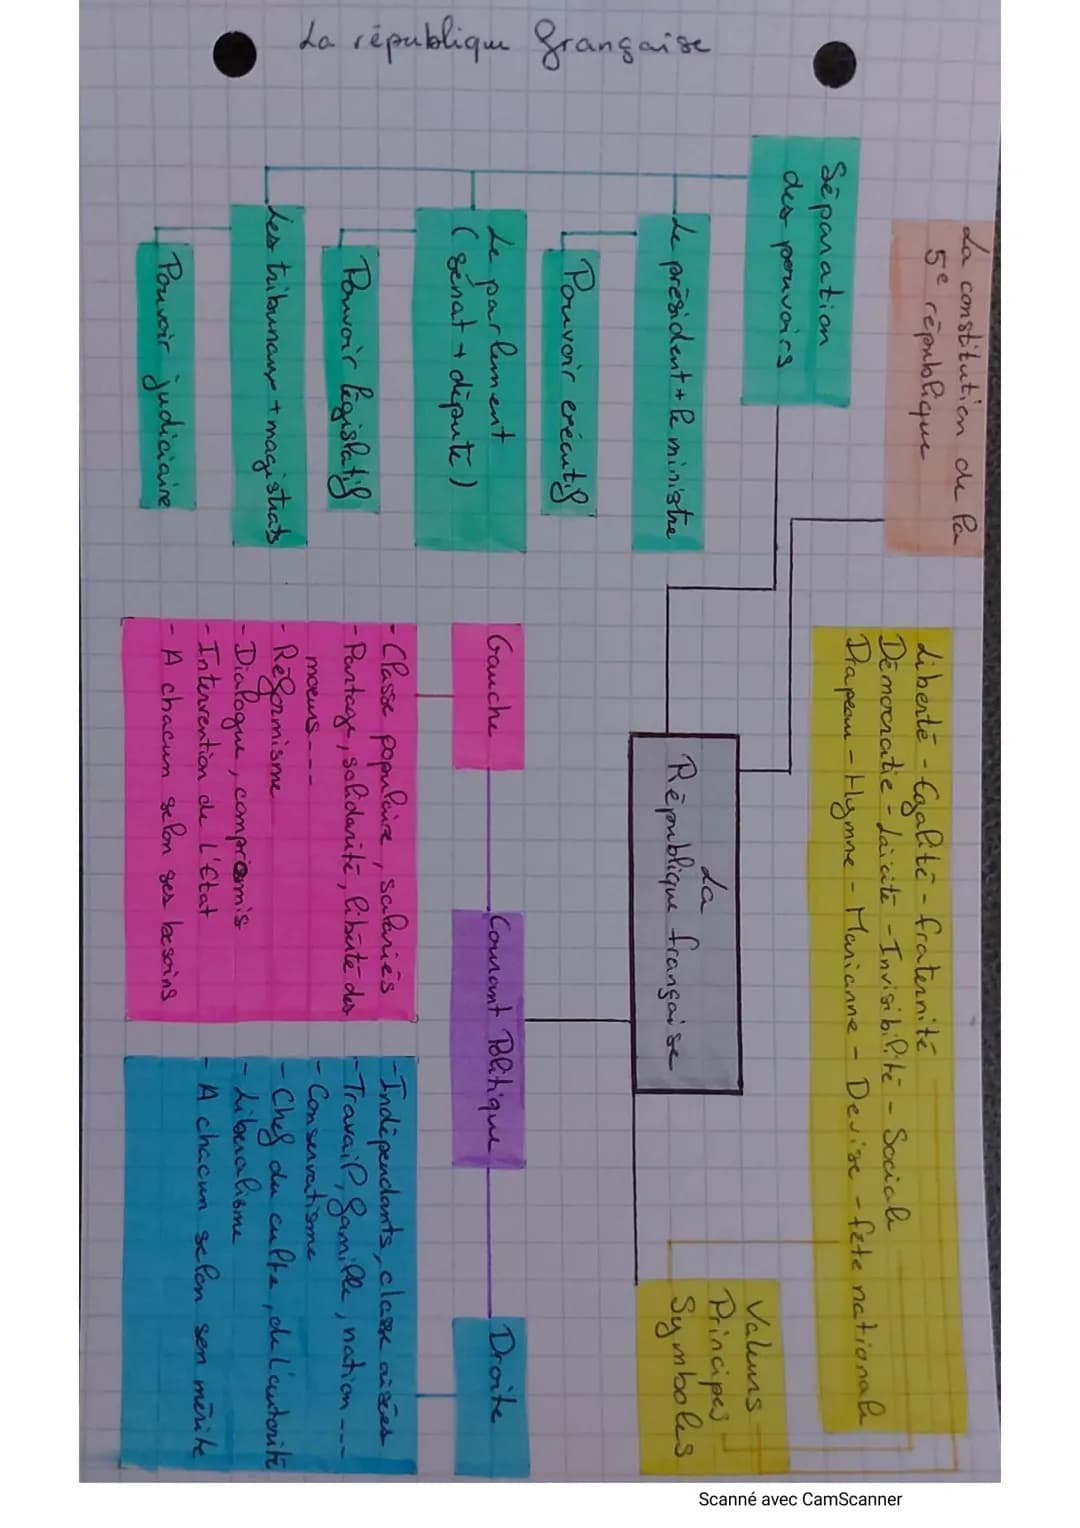 La république française
La constitution de la
5e république
Séparation
des pouvoirs
Le président + le ministre
Pouvoir exécutif
Le parlement
(sénat + députe)
Pouvoir législatif
Les tribunaux + magistrats
Pouvoir judiciaire
Liberté - Egalité - fraternité
Démocratie - Laïcité - Invisibilité - Sociale
Drapeau - Hymne - Marianne - Devise - fête nationale
Valeurs
Principes
Symboles
La
République française
Courant Politique
Gauche
- Classe populaire, salariés
- Partage, solidarité, liberté des
moeurs ---
- Réformisme
- Dialogue, compromis
- Intervention de l'Etat
- A chacun selon ses besoins
Droite
- Indépendants, classe aisées
- Travail, famille, nation ---
- Conservatisme
- Chef du culte, de l'autorité
- Libéralisme
- A chacun selon son mérite
Scanné avec CamScanner